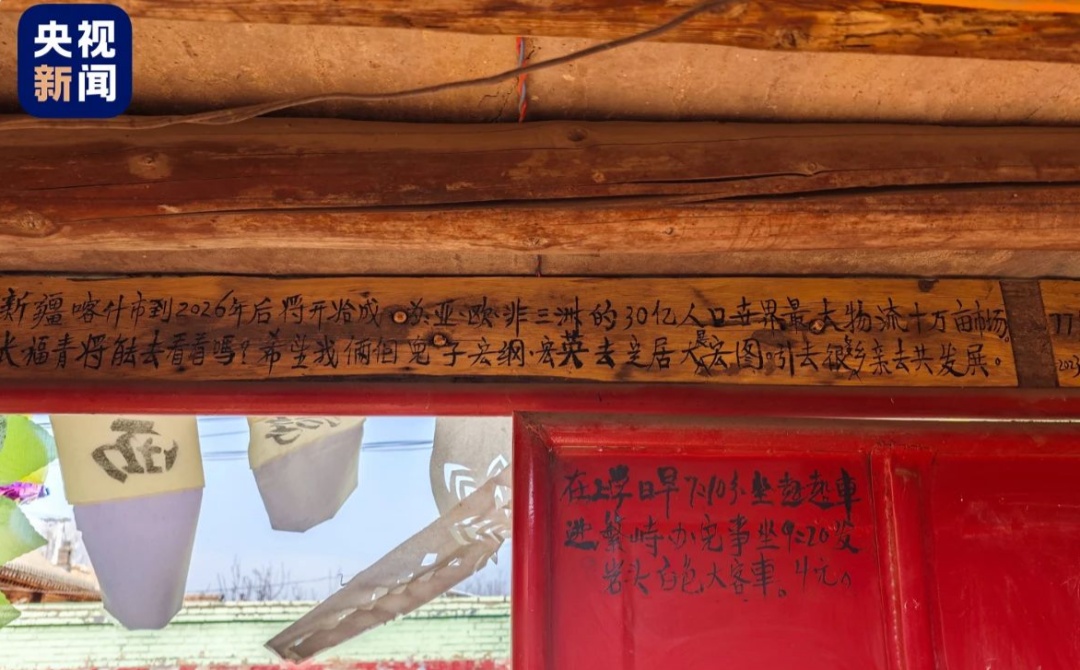 央视
新闻
新疆喀什市到2026年后将开始成为亚欧非三洲的30亿人口世界最大物流十万亩市场。
长福青将能去看看吗？希望我俩个儿子宏纲·宏英去定居大展宏图。引去银乡亲去共发展。
在上学日早7:10分坐赵赵车
进繁峙办完事坐9:20发
岩头白色大客车。4元。